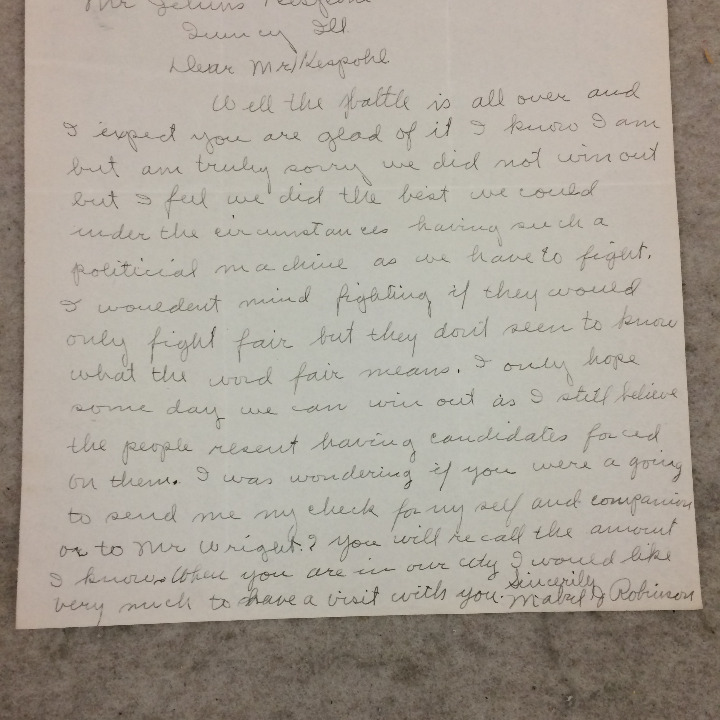 Mr Julius Kespohl
Quincy Ill
Dear Mr Kespohl
Well the battle is all over and
I expect you are glad of it I know I am
but am truly sorry we did not win out
but I feel we did the best we could
under the circumstances having such a
politicial machine as we have to fight.
I wouldent mind fighting if they would
only fight fair but they don't seen to know
what the word fair means. I only hope
some day we can win out as I still believe
the people resent having candidates forced
on them. I was wondering if you were a going
to send me my check for my self and companion
or to Mr Wright.? you will recall the amount
I know. When you are in our city I would like
very much to have a visit with you.
Sincerily
Mabel J Robinson